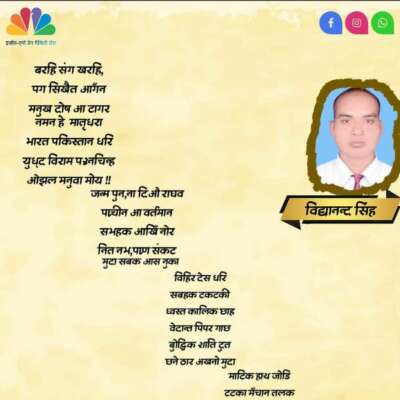 बरहि संग खरहि,
पग सिखैत आगँन
मनुख टोष आ टागर
नमन हे मातृधरा
भारत पकिस्तान धरि
युध्ट विराम प्रश्नचिन्ह
ओझल मनुवा मोय !!
जन्म पुन,ना टिऔ राघव
पाचीन आ वर्तमान
सभहक आखिँ नोर
नित नभ,पाण संकट
मुटा सबक आस नुका
विहिर टेस धरि
सबहक टकटकी
ध्वस्त कालिक छाह
वेटान्त पिपर गाछ
बुोद्धिक शाति टुत
छने ठार अखनो मुटा
माटिक हाथ जोडि
टटका मँचान तलक
विद्यानन्द सिंह